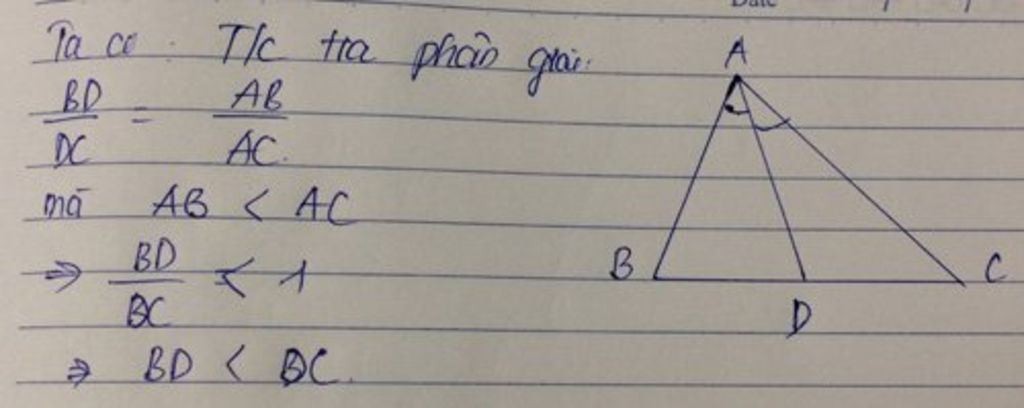 Date
Ta có: T/c tia phân giác.
BD/DC = AB/AC.
mà AB < AC
=> BD/DC < 1
=> BD < DC.
A
B
D
C